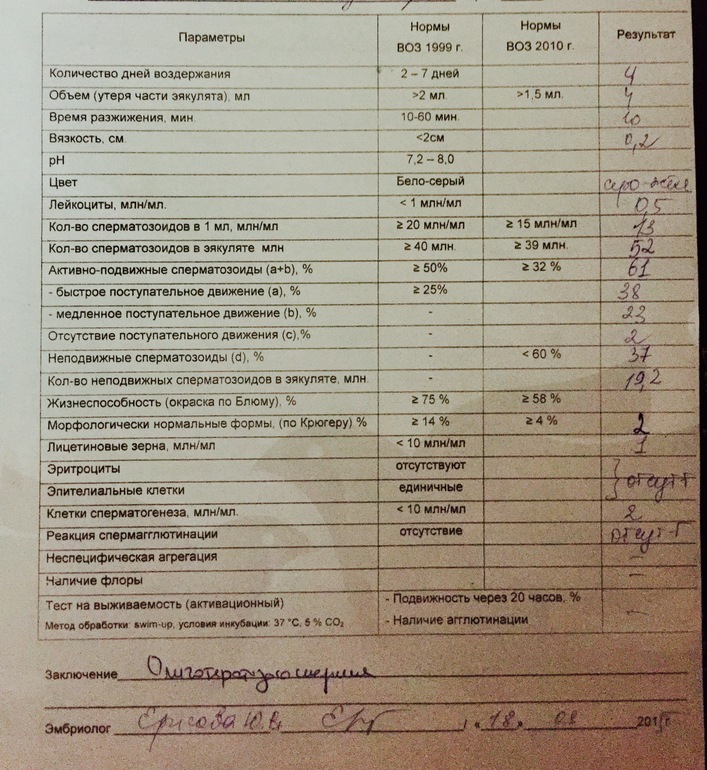 Параметры Нормы ВОЗ 1999 г. Нормы ВОЗ 2010 г. Результат
Количество дней воздержания 2 – 7 дней 4
Объем (утеря части эякулята), мл >2 мл. >1,5 мл. 4
Время разжижения, мин. 10-60 мин. 10
Вязкость, см. <2см 0,2
pH 7,2 – 8,0
Цвет Бело-серый
Лейкоциты, млн/мл. < 1 млн/мл 0,5
Кол-во сперматозоидов в 1 мл, млн/мл ≥ 20 млн/мл ≥ 15 млн/мл 13
Кол-во сперматозоидов в эякуляте млн ≥ 40 млн. ≥ 39 млн. 52
Активно-подвижные сперматозоиды (a+b), % ≥ 50% ≥ 32 % 61
- быстрое поступательное движение (a), % ≥ 25% 38
- медленное поступательное движение (b), % - 23
Отсутствие поступательного движения (c),% - 2
Неподвижные сперматозоиды (d), % - < 60 % 37
Кол-во неподвижных сперматозоидов в эякуляте, млн. - 19,2
Жизнеспособность (окраска по Блюму), % ≥ 75 % ≥ 58 %
Морфологически нормальные формы, (по Крюгеру) % ≥ 14 % ≥ 4 % 2
Лицетиновые зерна, млн/мл < 10 млн/мл 1
Эритроциты отсутствуют
Эпителиальные клетки единичные } отсут-т
Клетки сперматогенеза, млн/мл. < 10 млн/мл 2
Реакция спермагглютинации отсутствие отсут-т
Неспецифическая агрегация –
Наличие флоры –
Тест на выживаемость (активационный) - Подвижность через 20 часов, % –
Метод обработки: swim-up, условия инкубации: 37 °С, 5 % CO₂ - Наличие агглютинации
Заключение Олиготератозооспермия
Эмбриолог 18. 201